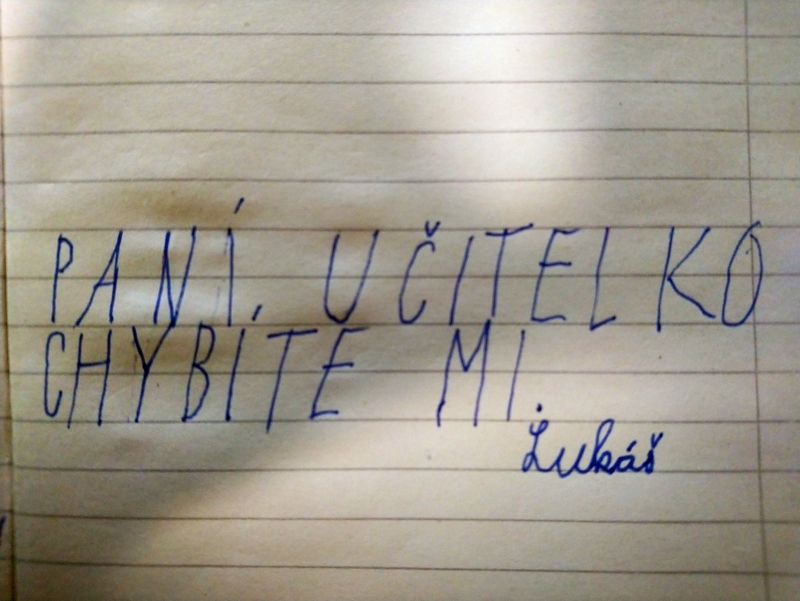 PANÍ UČITELKO
CHYBÍTE MI.
Lukáš